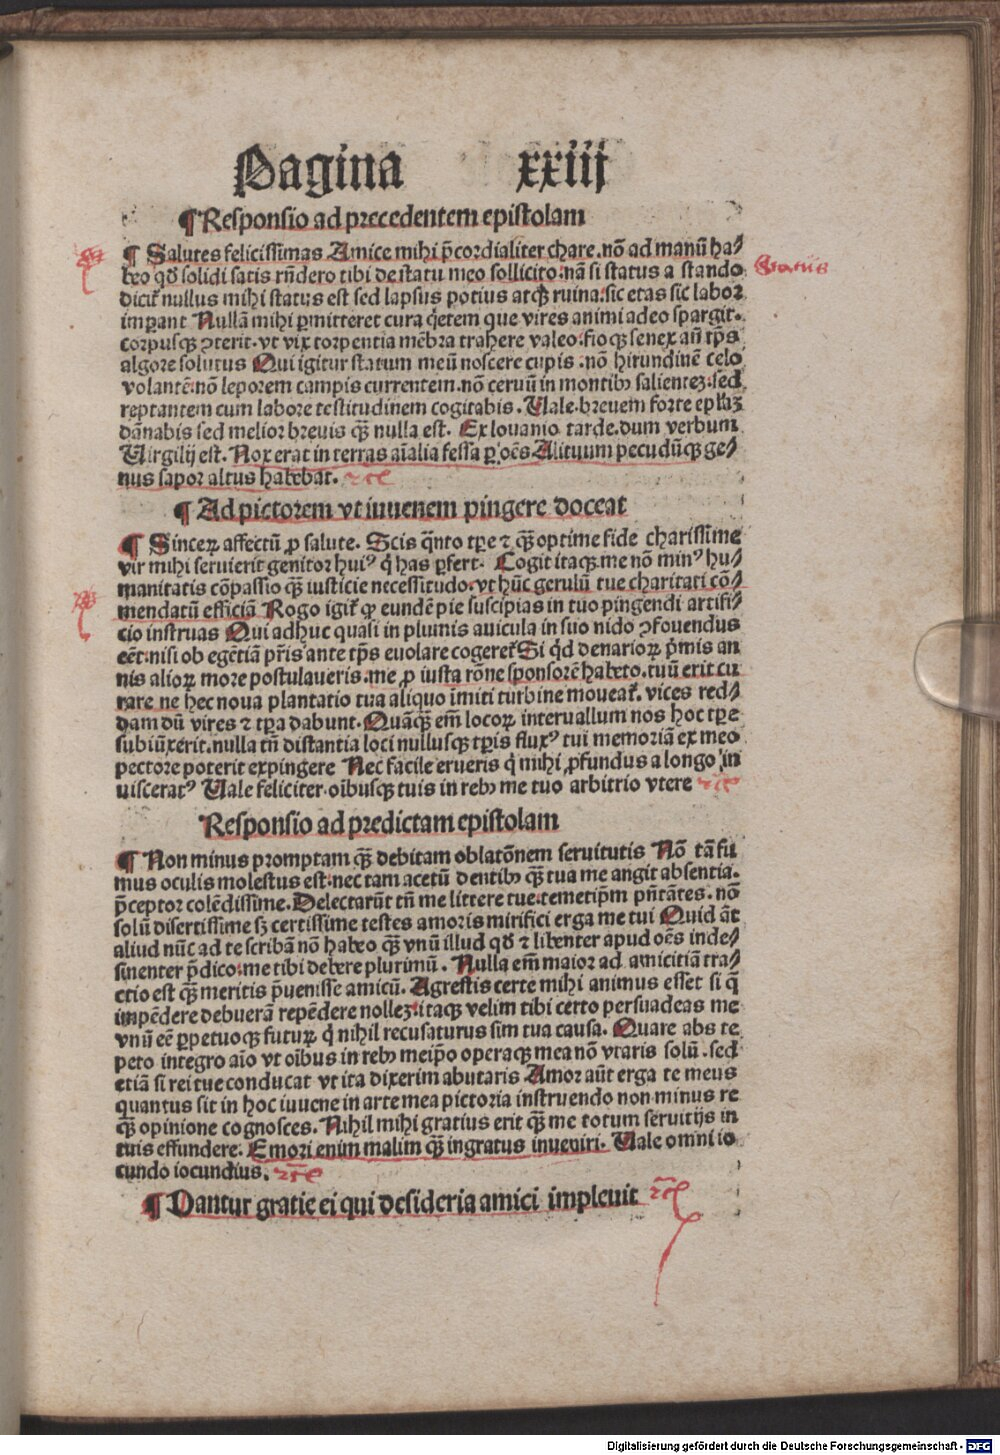 Pagina xxiij
¶ Responsio ad precedentem epistolam
¶ Salutes felicissimas Amice mihi p̄cordialiter chare. nō ad manū ha⸗
beo qđ solidi satis rn̄dero tibi de statu meo sollicito. nā si status a stando
Status
dicit̄ nullus mihi status est sed lapsus potius atqꝫ ruina. sic etas sic labor
imꝑant Nullā mihi ꝑmitteret cura q̇etem que vires animi adeo spargit.
corpusqꝫ ꝯterit. vt vix torpentia mēbra trahere valeo. fioqꝫ senex an̄ tp̄s
algore solutus Qui igitur statum meū noscere cupis. nō hirundinē celo
volantē. nō leporem campis currentem. nō ceruū in montibꝰ salientez. sed
reptantem cum labore testitudinem cogitabis. Uale. breuem forte epl̄aꝫ
dānabis sed melior breuis qꝫ̄ nulla est. Ex louanio tarde. dum verbum
Uirgilij est. Nox erat in terras aīalia fessa ꝑ oēs Alituum pecudūqꝫ ge⸗
nus sapor altus habebat. ⁊cͤ
¶ Ad pictorem vt iuuenem pingere doceat
¶ Sinceꝝ affectū ꝓ salute. Scis q̄nto tꝑe ⁊ qꝫ̄ optime fide charissime
vir mihi seruierit genitor huiꝰ q̇ has ꝑfert. Cogit itaqꝫ me nō minꝰ hu⸗
manitatis cōpassio qꝫ̄ iusticie necessitudo. vt hūc gerulū tue charitati cō⸗
mendatū efficiā Rogo igit̄ ꝙ eundē pie suscipias in tuo pingendi artifi⸗
cio instruas Qui adhuc quasi in plumis auicula in suo nido ꝯfouendus
eēt. nisi ob egētiā pr̄is ante tp̄s euolare cogeret̄ Si q̇d denarioꝝ p̄mis an
nis alioꝝ more postulaueris. me ꝓ iusta rōne sponsorē habeto. tuū erit cu
rare ne hec noua plantatio tua aliquo īmiti turbine moueat̄. vices red⸗
dam dū vires ⁊ tꝑa dabunt. Quāqꝫ̄ em̄ locoꝝ interuallum nos hoc tꝑe
subiūxerit. nulla tn̄ distantia loci nullusqꝫ tꝑis fluxꝰ tui memoriā ex meo
pectore poterit expingere Nec facile erueris q̇ mihi ꝓfundus a longo in
visceratꝰ Uale feliciter. oībusqꝫ tuis in rebꝰ me tuo arbitrio vtere ⁊cͤ
Responsio ad predictam epistolam
¶ Non minus promptam qꝫ̄ debitam oblatōnem seruitutis Nō tā fu
mus oculis molestus est. nec tam acetū dentibꝰ qꝫ̄ tua me angit absentia.
p̄ceptor colēdissime. Delectarūt tn̄ me littere tue. temetip̄m pn̄tātes. nō
solū disertissime sꝫ certissime testes amoris mirifici erga me tui Quid aūt
aliud nūc ad te scribā nō habeo qꝫ̄ vnū illud qđ ⁊ libenter apud oēs inde⸗
sinenter p̄dico. me tibi debere plurimū. Nulla em̄ maior ad amicitiā tra⸗
ctio est qꝫ̄ meritis p̄uenisse amicū. Agrestis certe mihi animus esset si q̄
impēdere debuerā repēdere nollez. itaqꝫ velim tibi certo persuadeas me
vnū eē ꝑpetuoqꝫ futuꝝ q̇ nihil recusaturus sim tua causa. Quare abs te
peto integro aīo vt oībus in rebꝰ meip̄o operaqꝫ mea nō vtaris solū. sed
etiā si rei tue conducat vt ita dixerim abutaris Amor aūt erga te meus
quantus sit in hoc iuuene in arte mea pictoria instruendo non minus re
qꝫ̄ opinione cognosces. Nihil mihi gratius erit qꝫ̄ me totum seruitijs in
tuis effundere. Emori enim malim qꝫ̄ ingratus inueniri. Uale omni io
cundo iocundius. ⁊cͤ
¶ Dantur gratie ei qui desideria amici impleuit ⁊cͤ
Digitalisierung gefördert durch die Deutsche Forschungsgemeinschaft - DFG